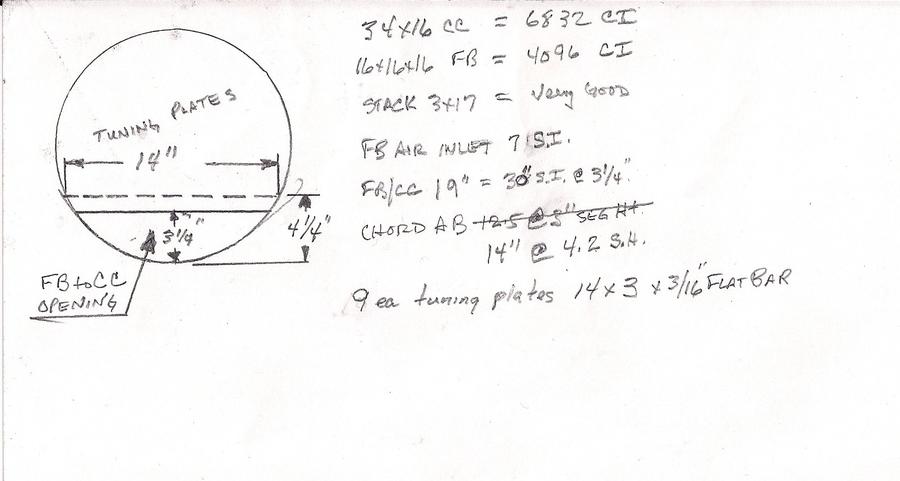 TUNING PLATES
14"
3 1/4"
4 1/4"
FB to CC
OPENING
34x16 CC = 6832 CI
16x16x16 FB = 4096 CI
STACK 3x17 = Very GOOD
FB AIR INLET 7 S.I.
FB/CC 19" = 30" S.I. @ 3 1/4"
CHORD AB 12.5 @ 3" SEG Ht.
14" @ 4.2 S.H.
9 ea tuning plates 14 x 3 x 3/16" FLAT BAR